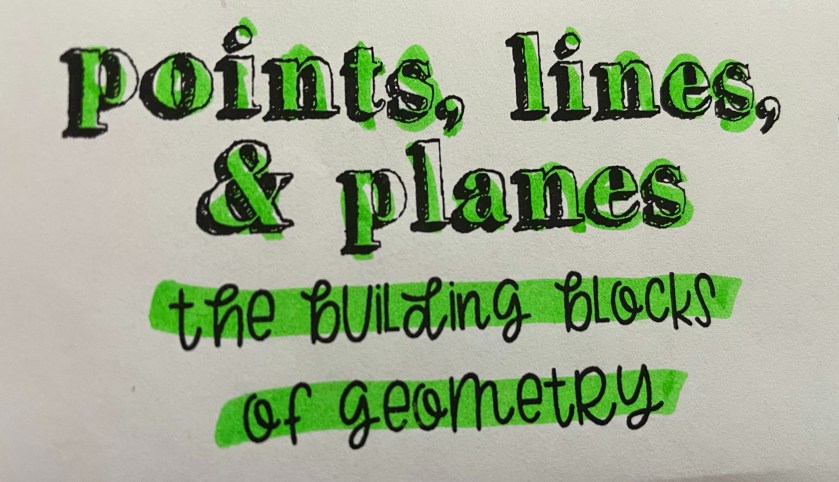 points, lines,
& planes
the building blocks
of geometry